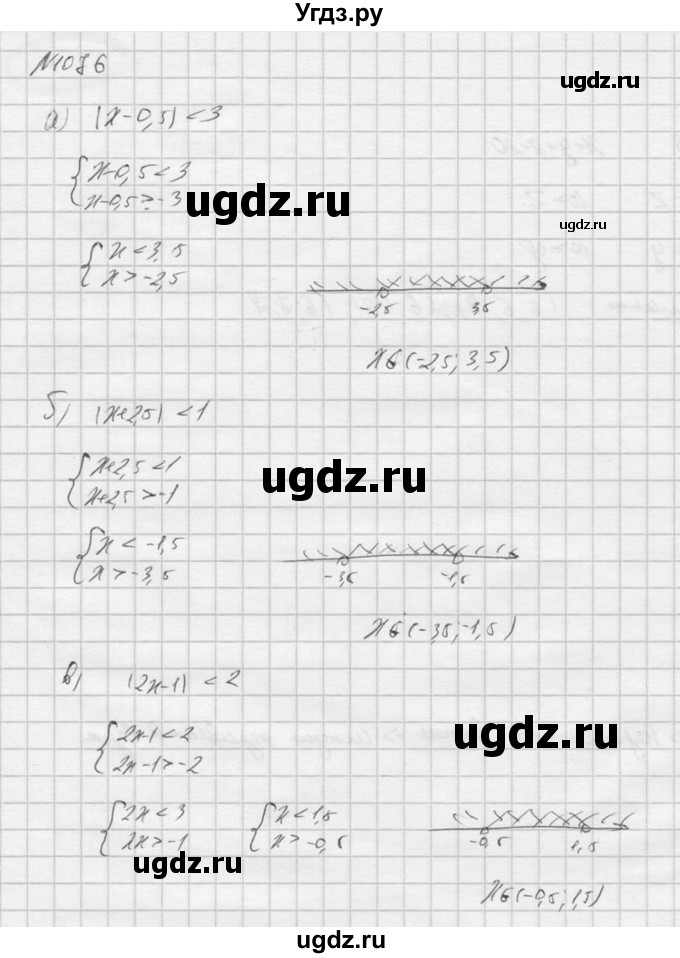 Угдз.ру
№1076
ugdz.ru
а) |x-0,5| < 3
{ x-0,5 < 3
x-0,5 > -3
ugdz.ru
ugdz.ru
{ x < 3,5
x > -2,5
-2,5 3,5
x∈(-2,5; 3,5)
б) |x+2,5| < 1
{ x+2,5 < 1
x+2,5 > -1
ugdz.ru
{ x < -1,5
x > -3,5
-3,5 -1,5
x∈(-3,5; -1,5)
в) |2x-1| < 2
{ 2x-1 < 2
2x-1 > -2
ugdz.ru
{ 2x < 3 { x < 1,5
2x > -1 x > -0,5
-0,5 1,5
ugdz.ru
x∈(-0,5; 1,5)
ugdz.ru